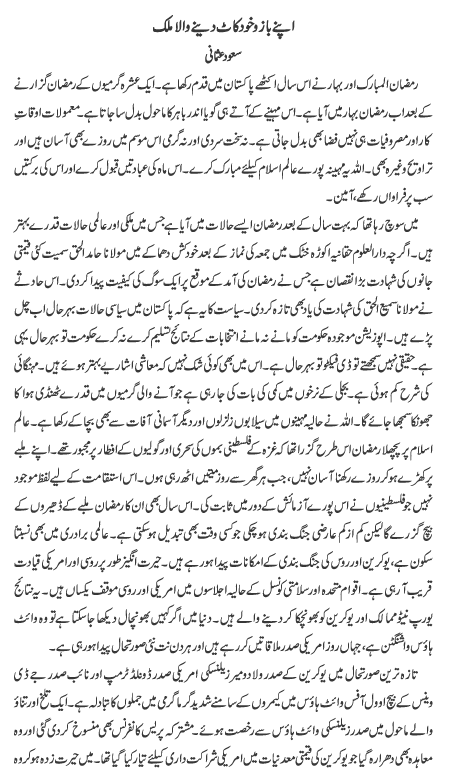 اپنے بازو خود کاٹ دینے والا ملک
سعود عثمانی
رمضان المبارک اور بہار نے اس سال اکٹھے پاکستان میں قدم رکھا ہے۔ ایک عشرہ گرمیوں کے رمضان گزارنے
کے بعد اب رمضان بہار میں آیا ہے۔ اس مہینے کے آتے ہی گویا اندر باہر کا ماحول بدل سا جاتا ہے۔ معمولات اوقاتِ
کار اور مصروفیات ہی نہیں فضا بھی بدل جاتی ہے۔ نہ سخت سردی اور نہ گرمی اس موسم میں روزے بھی آسان ہیں اور
تراویح وغیرہ بھی۔ اللہ یہ مہینہ پورے عالم اسلام کیلئے مبارک کرے۔ اس ماہ کی عبادتیں قبول کرے اور اس کی برکتیں
سب پر فراواں رکھے، آمین۔
میں سوچ رہا تھا کہ بہت سال کے بعد رمضان ایسے حالات میں آیا ہے جس میں ملکی اور عالمی حالات قدرے بہتر
ہیں۔ اگرچہ دارالعلوم حقانیہ اکوڑہ خٹک میں جمعہ کی نماز کے بعد خودکش دھماکے میں مولانا حامد الحق سمیت کئی قیمتی
جانوں کی شہادت بڑا نقصان ہے جس نے رمضان کی آمد کے موقع پر ایک سوگ کی کیفیت پیدا کر دی۔ اس حادثے
نے مولانا سمیع الحق کی شہادت کی یاد بھی تازہ کر دی۔ سیاست کا یہ ہے کہ پاکستان میں سیاسی حالات بہرحال اب چل
پڑے ہیں۔ اپوزیشن موجودہ حکومت کو مانے نہ مانے انتخابات کے نتائج تسلیم کرے نہ کرے حکومت تو بہرحال یہی
ہے۔ حقیقی نہیں سمجھتے تو ڈی فیکٹو تو بہرحال ہے۔ اس میں بھی کوئی شک نہیں کہ معاشی اشاریے بہتر ہوئے ہیں۔ مہنگائی
کی شرح کم ہوئی ہے۔ بجلی کے نرخوں میں کمی کی بات کی جا رہی ہے جو آنے والی گرمیوں میں قدرے ٹھنڈی ہوا کا
جھونکا سمجھا جائے گا۔ اللہ نے حالیہ مہینوں میں سیلابوں زلزلوں اور دیگر آسمانی آفات سے بھی بچا کے رکھا ہے۔ عالم
اسلام پر پچھلا رمضان اس طرح گزرا تھا کہ غزہ کے فلسطینی بموں کی سحری اور گولیوں کے افطار پر مجبور تھے۔ اپنے ملبے
پر کھڑے ہو کر روزے رکھنا آسان نہیں، جب ہر گھر سے روز میتیں اٹھ رہی ہوں۔ اس استقامت کے لیے لفظ موجود
نہیں جو فلسطینیوں نے اس پورے آزمائش کے دور میں ثابت کی۔ اس سال بھی ان کا رمضان ملبے کے ڈھیروں کے
بیچ گزرے گا لیکن کم از کم عارضی جنگ بندی ہو چکی جو کسی وقت بھی تبدیل ہو سکتی ہے۔ عالمی برادری میں بھی نسبتاً
سکون ہے، یوکرین اور روس کی جنگ بندی کے امکانات پیدا ہو رہے ہیں۔ حیرت انگیز طور پر روسی اور امریکی قیادت
قریب آ رہی ہے۔ اقوام متحدہ اور سلامتی کونسل کے حالیہ اجلاسوں میں امریکی اور روسی موقف یکساں ہیں۔ یہ نتائج
یورپ نیٹو ممالک اور یوکرین کو بھونچکا کر دینے والے ہیں۔ دنیا میں اگر کہیں بھونچال دیکھا جا سکتا ہے تو وہ وائٹ
ہاؤس واشنگٹن ہے، جہاں روز امریکی صدر ملاقاتیں کر رہے ہیں اور ہر دن نت نئی صورتحال پیدا ہو رہی ہے۔
تازہ ترین صورتحال میں یوکرین کے صدر ولادومیر زیلنسکی امریکی صدر ڈونلڈ ٹرمپ اور نائب صدر جے ڈی
وینس کے بیچ اوول آفس وائٹ ہاؤس میں کیمروں کے سامنے شدید گرما گرمی میں جملوں کا تبادلہ ہے۔ ایک تلخ اور تناؤ
والے ماحول میں صدر زیلنسکی وائٹ ہاؤس سے رخصت ہوئے۔ مشترکہ پریس کانفرنس بھی منسوخ کر دی گئی اور وہ
معاہدہ بھی دھرا رہ گیا جو یوکرین کی قیمتی معدنیات میں امریکی شراکت داری کیلئے تیار کیا گیا تھا۔ میں حیرت زدہ ہو کر وہ